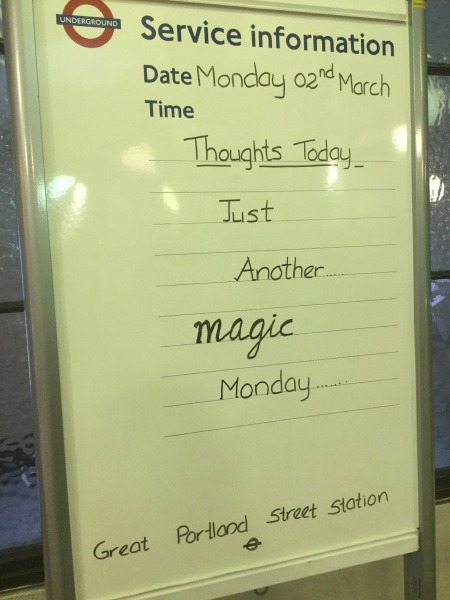 UNDERGROUND
Service information
Date Monday 02nd March
Time
Thoughts Today
Just
Another.....
magic
Monday.......
Great Portland Street Station